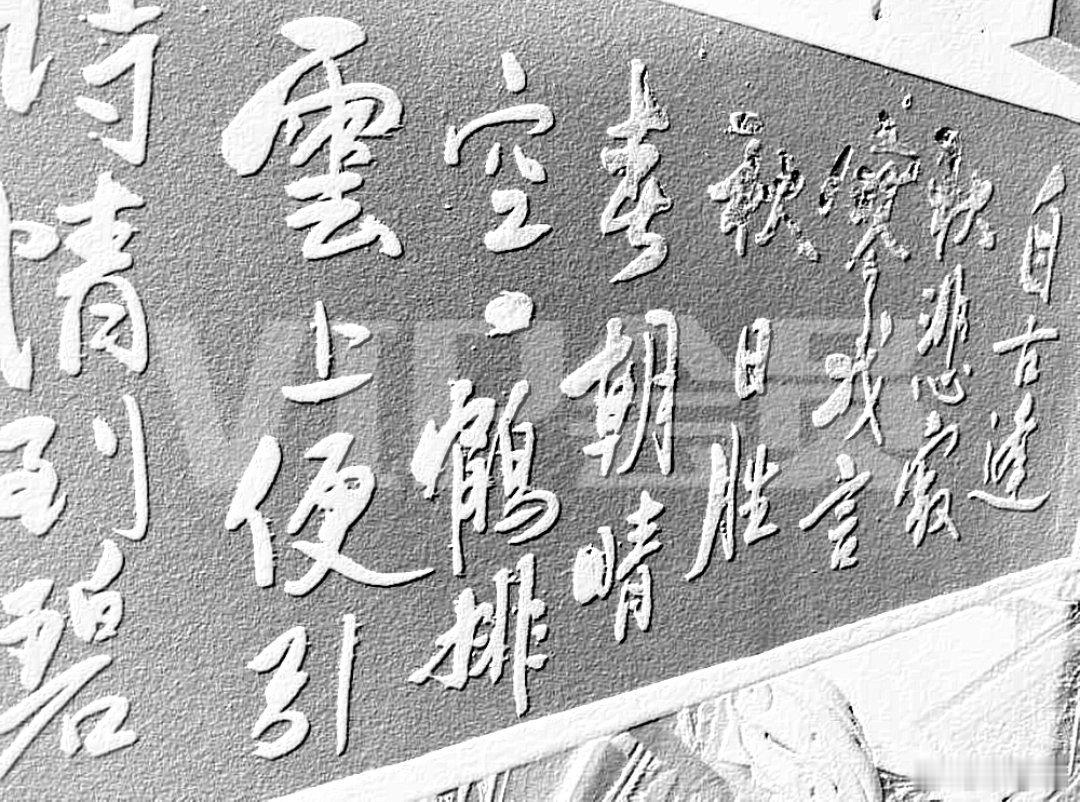 自古逢
秋悲寂
寥我言
秋日胜
春朝晴
空一鶴排
雲上便引
詩情到碧